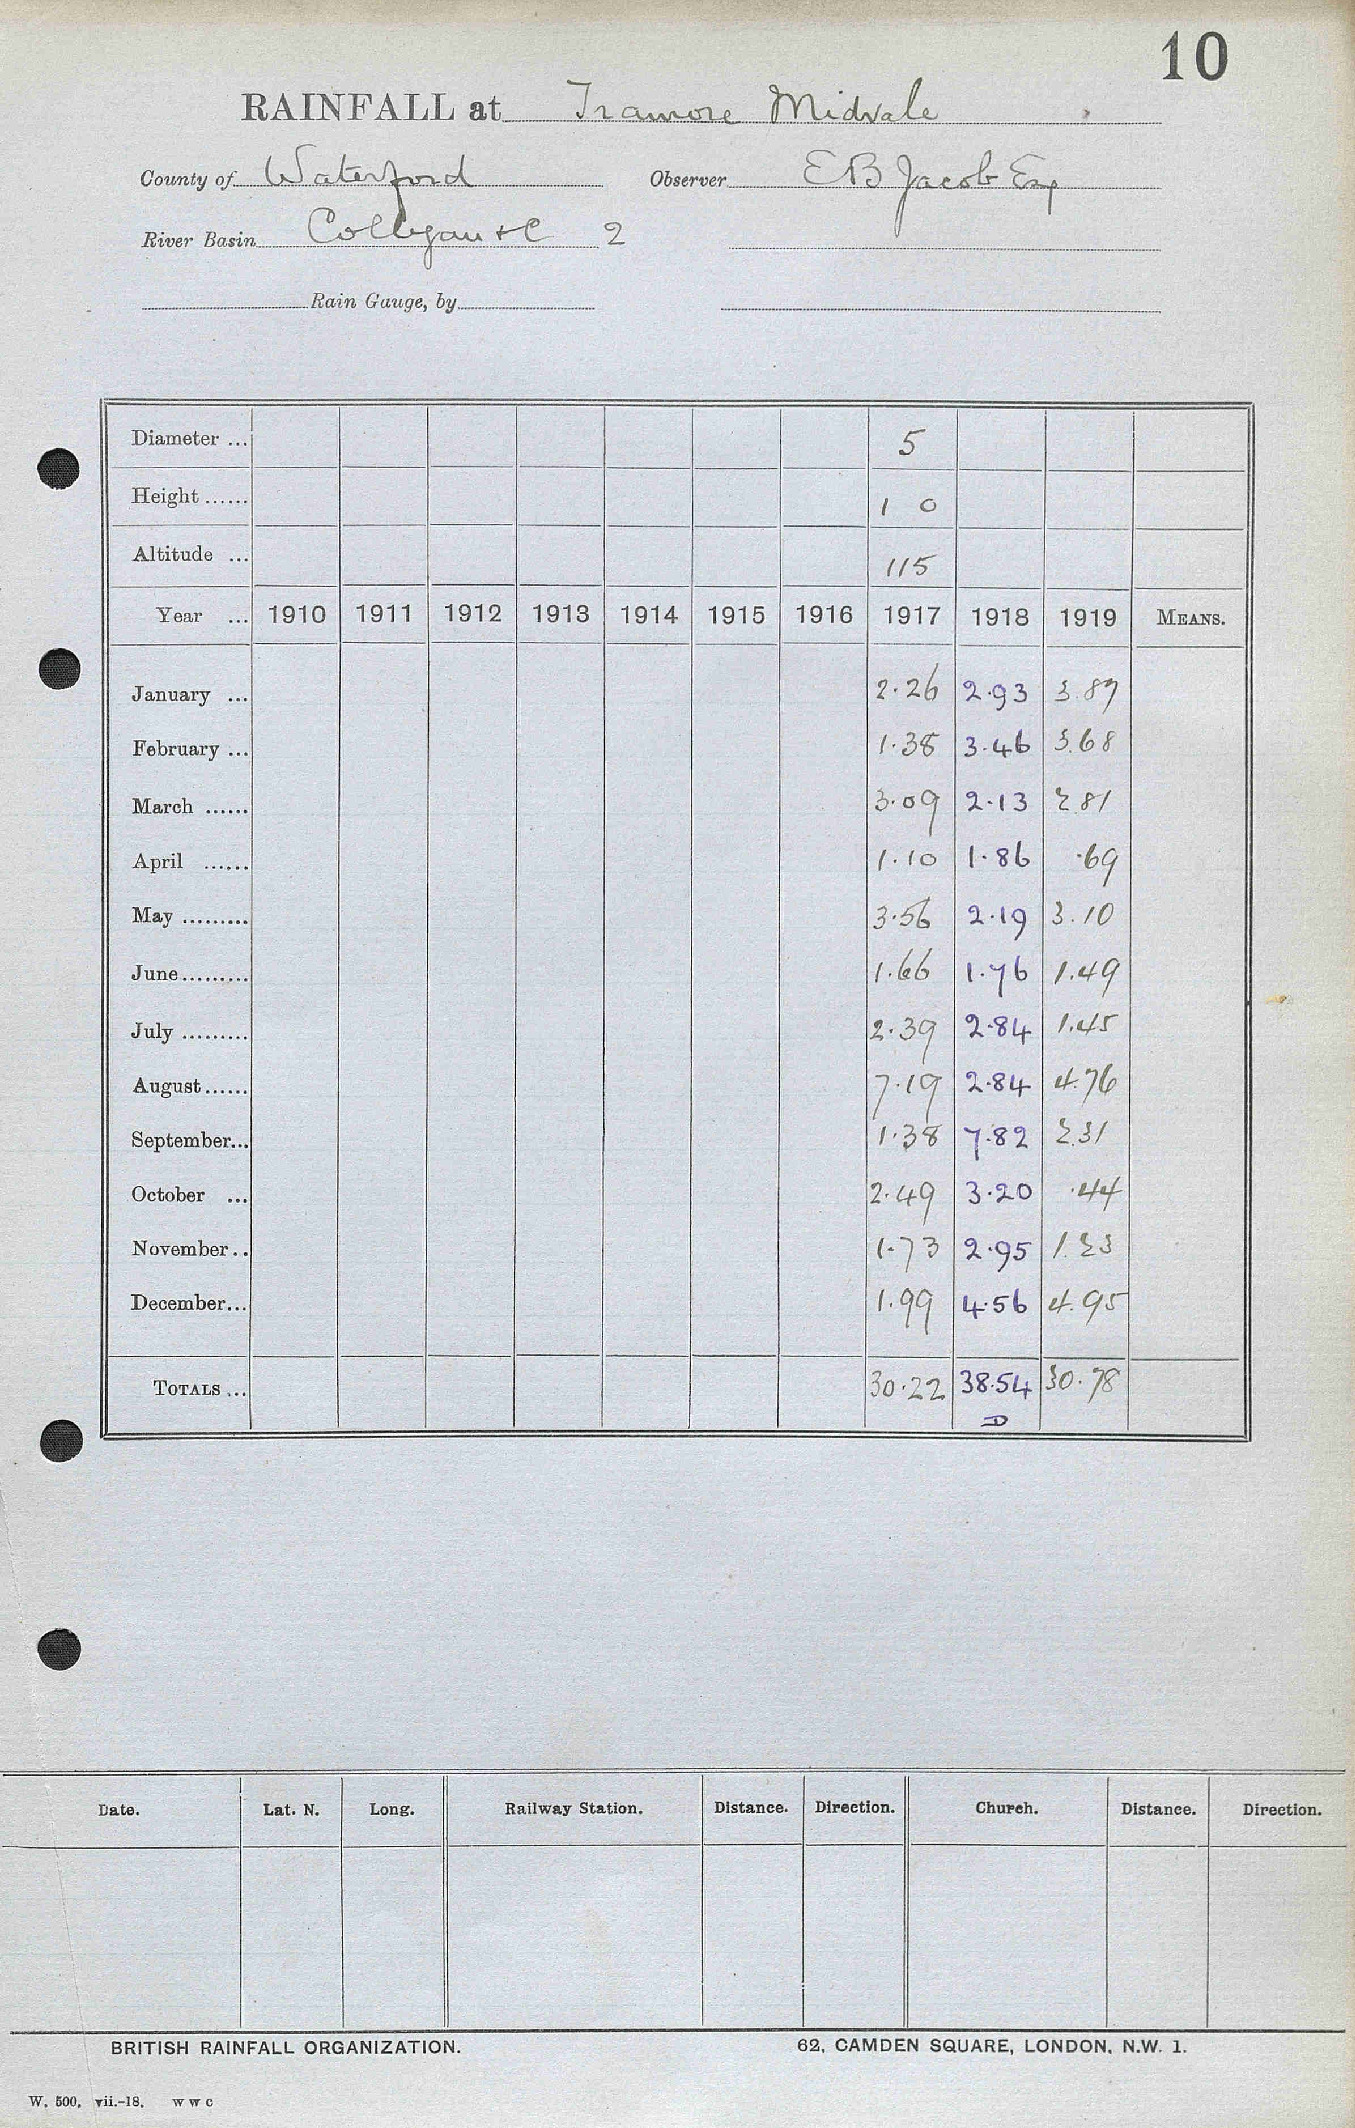 10
RAINFALL at Tramore Midvale
County of Waterford Observer E B Jacob Esq
River Basin Colligan &c 2
Rain Gauge, by
Diameter ... 5
Height ...... 1 0
Altitude ... 115
Year ... 1910 1911 1912 1913 1914 1915 1916 1917 1918 1919 MEANS.
January ... 2.26 2.93 3.87
February ... 1.38 3.46 3.68
March ...... 3.09 2.13 2.81
April ...... 1.10 1.86 .69
May ......... 3.56 2.19 3.10
June......... 1.66 1.76 1.49
July ......... 2.39 2.84 1.45
August...... 7.19 2.84 4.76
September... 1.38 7.82 2.31
October ... 2.49 3.20 .44
November.. 1.73 2.95 1.23
December... 1.99 4.56 4.95
TOTALS ... 30.22 38.54 30.78
Date. Lat. N. Long. Railway Station. Distance. Direction. Church. Distance. Direction.
BRITISH RAINFALL ORGANIZATION. 62, CAMDEN SQUARE, LONDON, N.W. 1.
W. 500. vii.-18. W W C